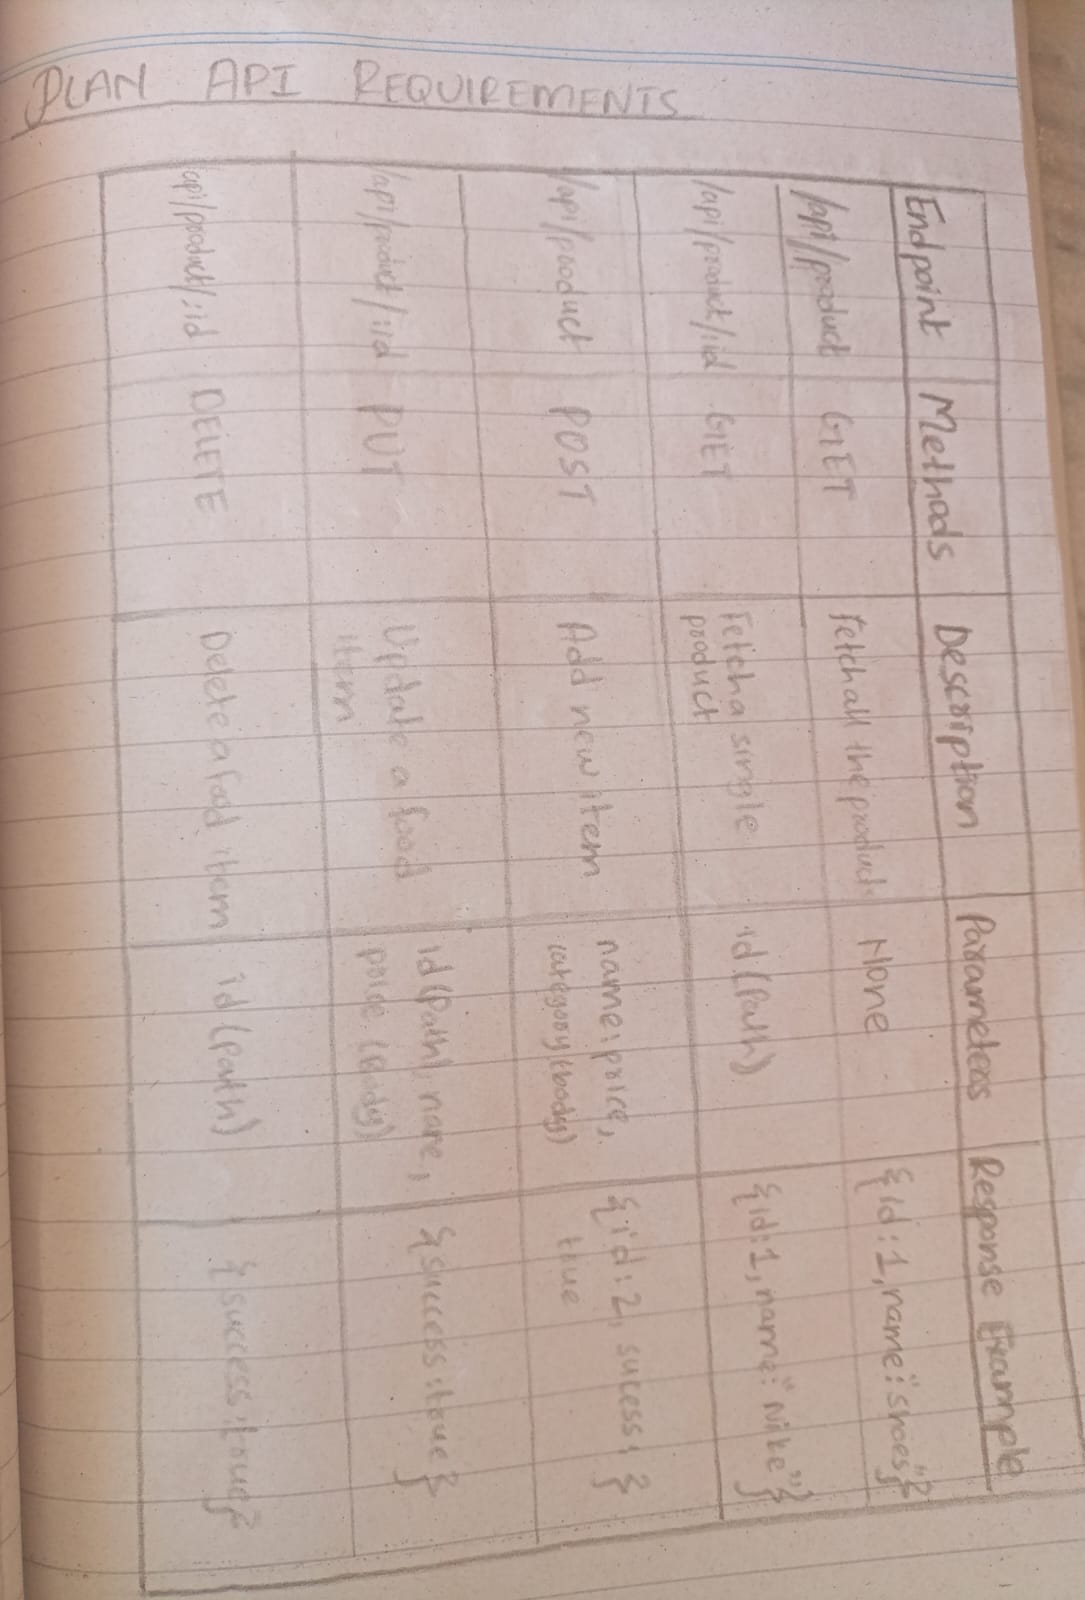 PLAN API REQUIREMENTS
Endpoint Methods Description Parameters Response Example
/api/product GET Fetch all the product None {id:1,name:"shoes"}
/api/product/:id GET Fetch a single
product id (Path) {id:1,name:"Nike"}
/api/product POST Add new item name:price,
category(body) {id:2, sucess:
true }
/api/product/:id PUT Update a food
item id(Path), name,
price (Body) {success:true}
api/product/:id DELETE Delete a food item id (path) {success:true}